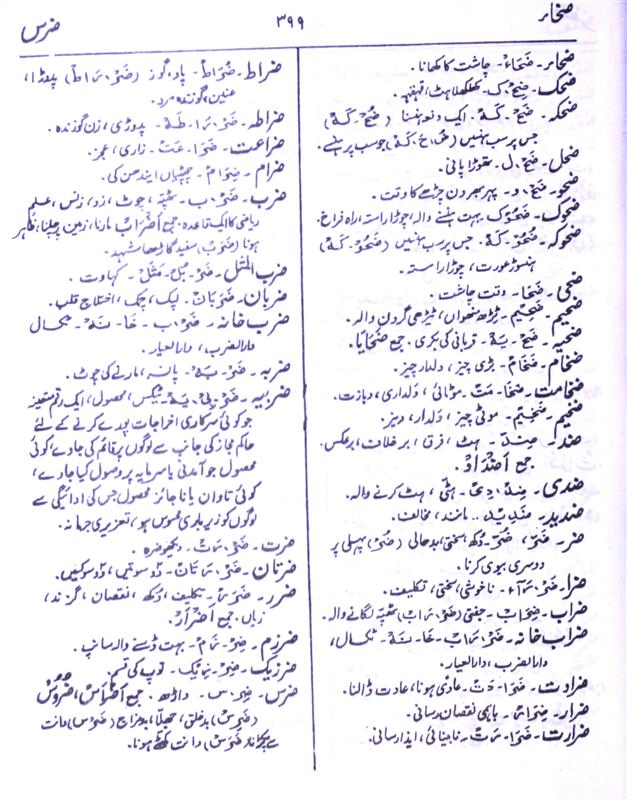 ضحائر
۳۹۹
ضرس
ضحاء۔ ضَحَاءْ۔ چاشت کا کھانا۔
ضحک۔ ضِحْ۔ک۔ کھلکھلاہٹ، قہقہہ۔
ضحکہ۔ ضَحْ۔کَہْ۔ ایک دفعہ ہنسنا (ضُحْ۔کَہْ)
جس پر سب ہنسیں (ضُ۔حَ۔کَہْ) جو سب پر ہنسے۔
ضحل۔ ضَحْ۔ل۔ تھوڑا پانی۔
ضحو۔ ضَحْ۔و۔ پہر بھر دن چڑھے کا وقت۔
ضحوک۔ ضَحُوک۔ بہت ہنسنے والا، چوڑا راستہ، راہ فراخ۔
ضحوکہ۔ ضَحُوْ۔کَہْ۔ جس پر سب ہنسیں (ضَحُوْ۔کَہْ)
ہنسوڑ عورت، چوڑا راستہ۔
ضحیٰ۔ ضُحَا۔ وقت چاشت۔
ضحیم۔ ضَحِیْم۔ ٹیڑھی گردن والا۔
ضحیہ۔ ضَحْ۔یَہْ۔ قربانی کی بکری۔ جمع ضَحَایَا۔
ضخام۔ ضَخَامْ۔ بڑی چیز، دلدار چیز۔
ضخامت۔ ضَخَا۔مَتْ۔ موٹائی، دلداری، دبازت۔
ضخیم۔ ضَخِیْم۔ موٹی چیز، دلدار، دبیز۔
ضد۔ ضِدْ۔ ہٹ، فرق، برخلاف، برعکس۔
جمع اَضْدَادْ۔
ضدی۔ ضِدْ۔دِیْ۔ ہٹی، ہٹ کرنے والا۔
ضدید۔ ضَدِیْد۔ مانند، مخالف۔
ضر۔ ضَرْ، ضُرْ۔ دکھ، سختی، بدحالی (ضِرْ) پہلی پر
دوسری بیوی کرنا۔
ضرا۔ ضَرْ۔رَآء۔ ناخوشی، سختی، تکلیف۔
ضراب۔ ضِرَابْ۔ جفتی (ضَرْ۔رَابْ) ٹھپہ لگانے والا۔
ضراب خانہ۔ ضَرْ۔رَابْ۔ خَا۔ نَہْ۔ ٹکسال،
دارالضرب، دارالعیار۔
ضراوت۔ ضَرَا۔وَتْ۔ عادی ہونا، عادت ڈالنا۔
ضرار۔ ضِرَارْ۔ باہمی نقصان رسانی۔
ضرارت۔ ضَرَا۔رَتْ۔ نابینائی، ایذا رسانی۔
ضراط۔ ضُرَاطْ۔ پاد، گوز (ضَرْ۔رَاطْ) پدوڑا،
عنین، گوزندہ مرد۔
ضراطہ۔ ضَرْ۔رَا۔طَہْ۔ پدوڑی، زن گوزندہ۔
ضراعت۔ ضَرَا۔عَتْ۔ زاری، عجز۔
ضرام۔ ضِرَامْ۔ چپٹیاں ایندھن کی۔
ضرب۔ ضَرْ۔ب۔ ٹھپہ، چوٹ، زد، زنس، علم
ریاضی کا ایک قاعدہ۔ جمع اَضْرَابْ مارنا، زمین چلنا، ظاہر
ہونا (ضَرَبْ) سفید گاڑھا شہد۔
ضرب المثل۔ ضَرْ۔بُلْ۔مَثَلْ۔ کہاوت۔
ضربان۔ ضَرَبَانْ۔ لپک، چمک، اختلاج قلب۔
ضرب خانہ۔ ضَرْ۔ب۔ خَا۔ نَہْ۔ ٹکسال
دارالضرب، دارالعیار۔
ضربہ۔ ضَرْ۔بَہْ۔ پانسہ، مارنے کی چوٹ۔
ضریبہ۔ ضَرِیْ۔بَہْ۔ ٹیکس، محصول، ایک رقم متعینہ
جو کوئی سرکاری اخراجات پورے کرنے کے لئے
حاکم مجاز کی جانب سے لوگوں پر قائم کی جاوے، کوئی
محصول جو آمدنی یا سرمایہ پر وصول کیا جاوے،
کوئی تاوان یا ناجائز محصول جس کی ادائیگی سے
لوگوں کو زیر باری محسوس ہو، تعزیری جرمانہ۔
ضرت۔ ضَرْ۔رَتْ۔ دیکھو ضرہ۔
ضرتان۔ ضَرْ۔رَتَانْ۔ دو سوتیں، دو سوکنیں۔
ضرر۔ ضَرَرْ۔ تکلیف، دکھ، نقصان، گزند،
زیاں۔ جمع اَضْرَارْ۔
ضرزم۔ ضِرْ۔زَمْ۔ بہت ڈسنے والا سانپ۔
ضرزیک۔ ضِرْ۔زِیْک۔ توپ کی قسم۔
ضرس۔ ضِرْ۔س۔ داڑھ۔ جمع اَضْرَاسْ، ضُرُوْسْ
(ضَرِسْ) بدخلق، جھلا، بدمزاج (ضَرْسْ) دانت
سے پکڑنا (ضَرَسْ) دانت کھٹے ہونا۔